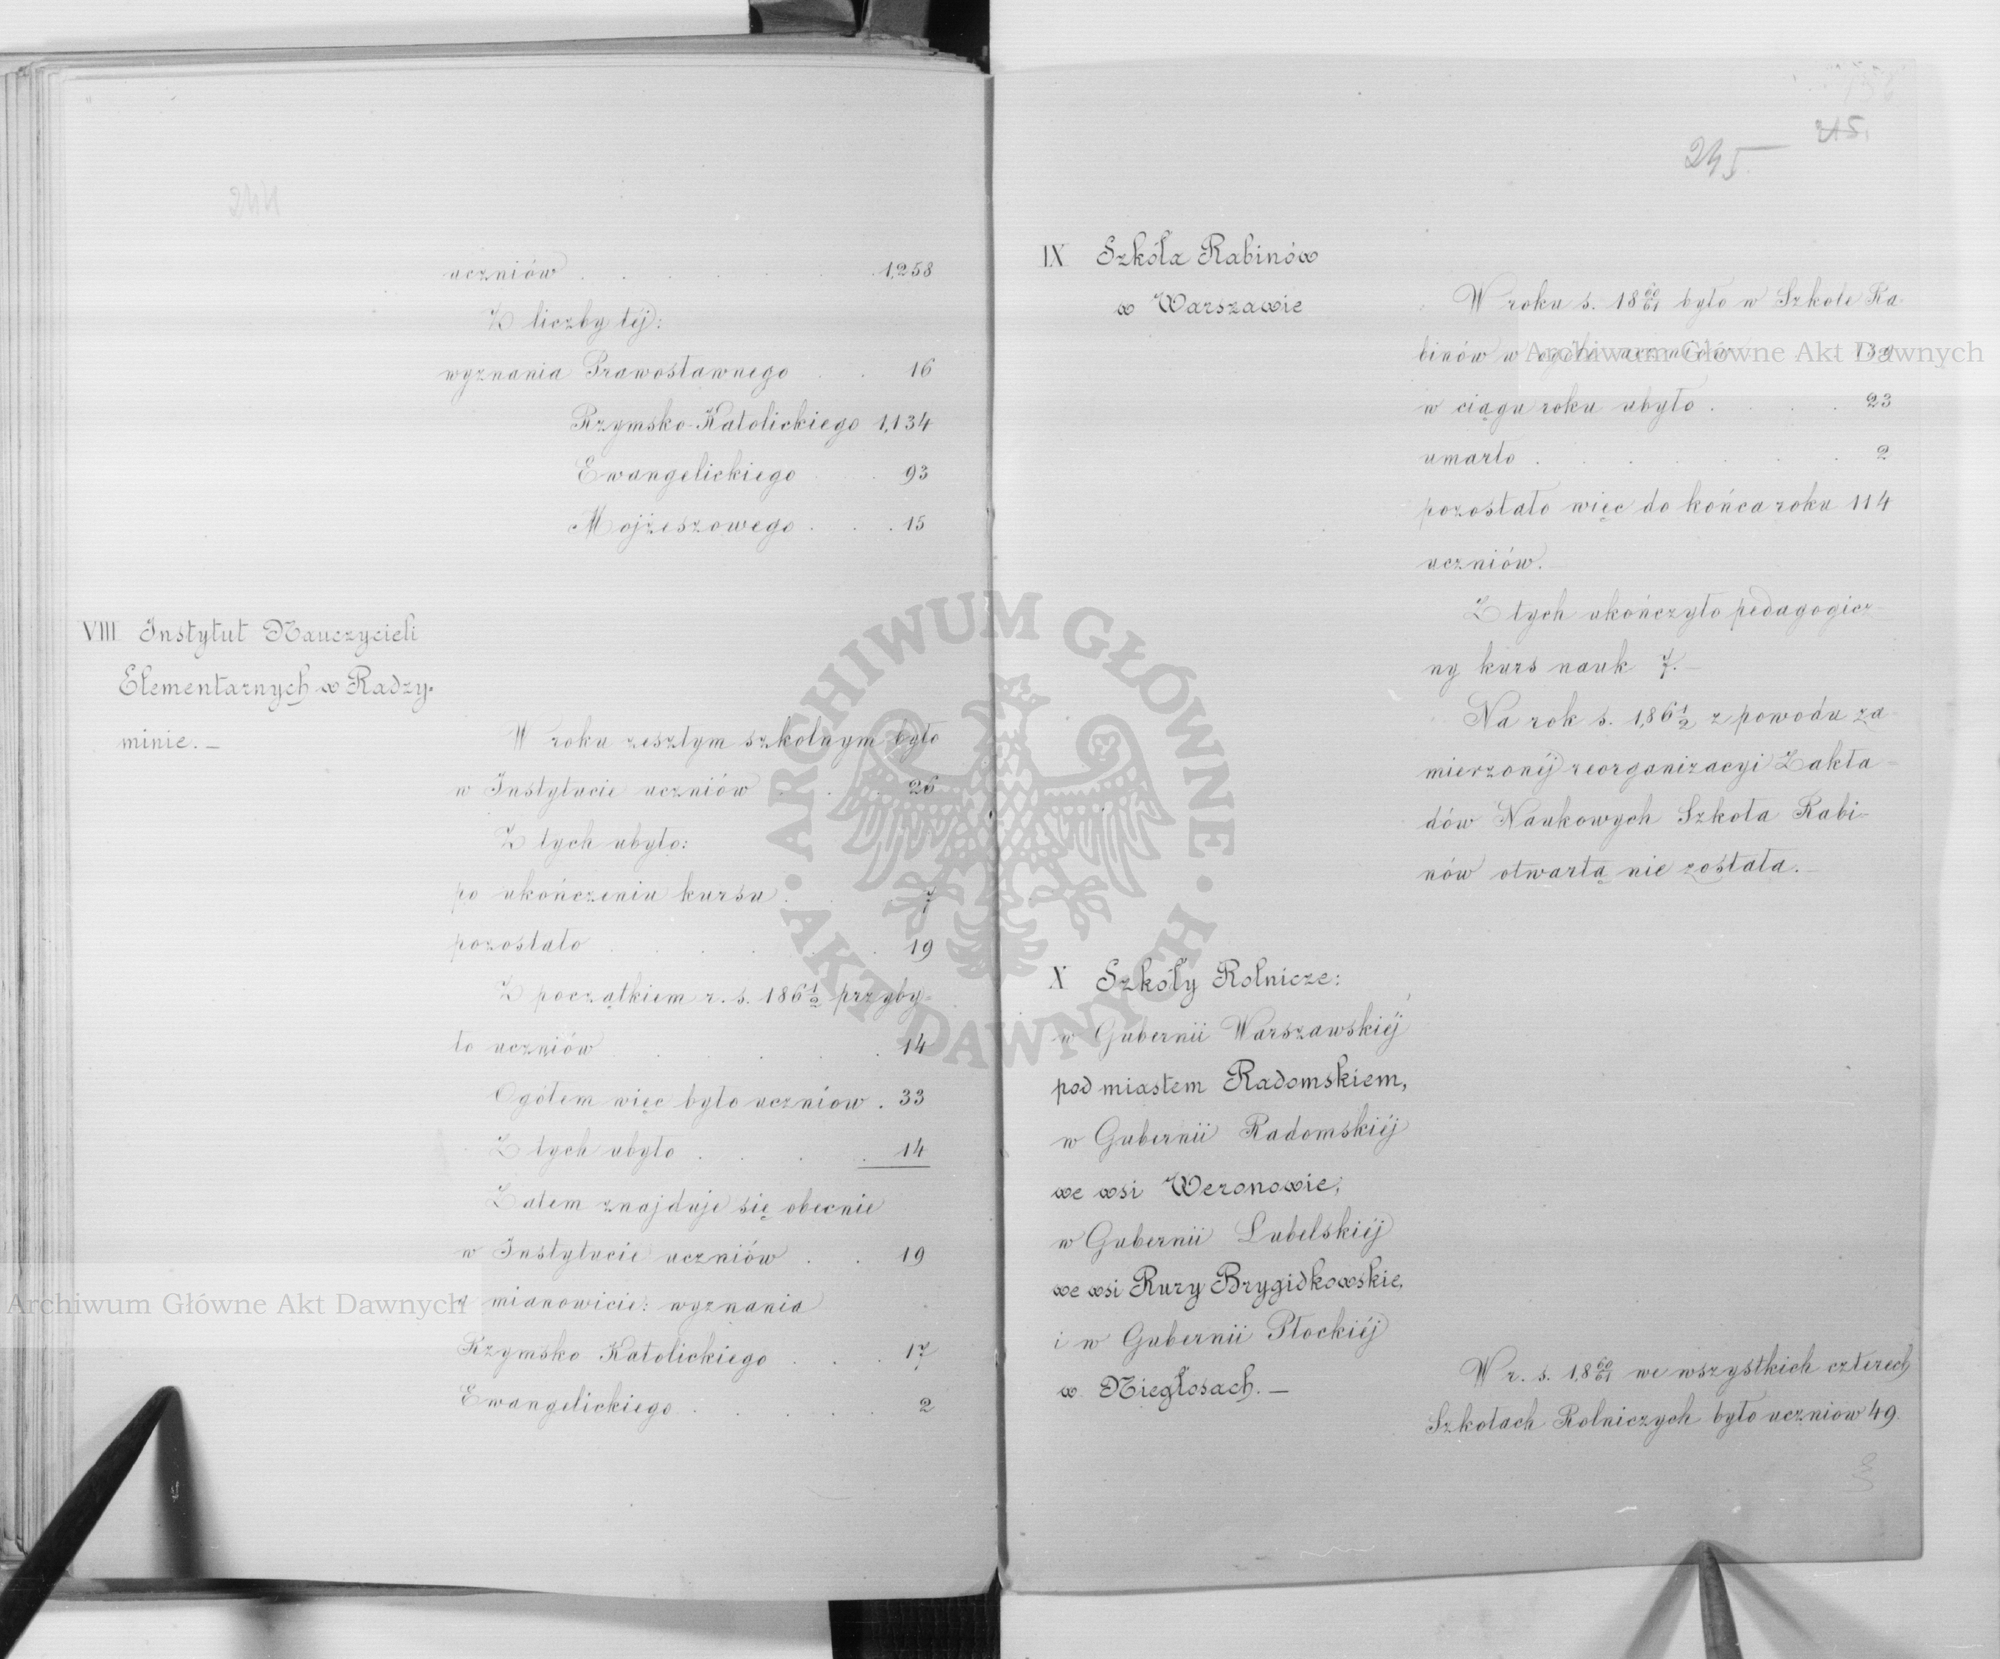 uczniów . . . . . . 1,258
Z liczby téj:
wyznania Prawosławnego . . 16
Rzymsko-Katolickiego 1,134
Ewangelickiego . . 93
Mojżeszowego . . . 15
VIII Instytut Nauczycieli
Elementarnych w Radzy-
minie. —
W roku zeszłym szkolnym było
w Instytucie uczniów . . . 26
Z tych ubyło:
po ukończeniu kursu . . 7
pozostało . . . . . . 19
Z początkiem r. s. 186½ przyby-
ło uczniów . . . . . . 14
Ogółem więc było uczniow . 33
Z tych ubyło . . . . 14
Zatem znajduje się obecnie
w Instytucie uczniów . . 19
a mianowicie: wyznania
Rzymsko Katolickiego . . . 17
Ewangelickiego . . . . . 2
245
215.
IX Szkóła Rabinów
w Warszawie
W roku s. 18 60/61 było w Szkole Ra-
binów w ogóle uczniów . . 139
w ciągu roku ubyło . . . . 23
umarło . . . . . . . 2
pozostało więc do końca roku 114
uczniów.
Z tych ukończyło pedagogicz-
ny kurs nauk 7. —
Na rok s. 1,86½ z powodu za-
mierzonéj reorganizacyi Zakła-
dów Naukowych Szkoła Rabi-
nów otwartą nie została. —
X Szkóły Rolnicze:
w Gubernii Warszawskiéj
pod miastem Radomskiem,
w Gubernii Radomskiéj
we wsi Weronowie;
w Gubernii Lubelskiéj
we wsi Rury Brygidkowskie,
i w Gubernii Płockiéj
w Niegłosach. —
W r. s. 1,8 60/61 we wszystkich czterech
Szkołach Rolniczych było uczniow 49.
Archiwum Główne Akt Dawnych
Archiwum Główne Akt Dawnych
ARCHIWUM GŁÓWNE · AKT DAWNYCH ·